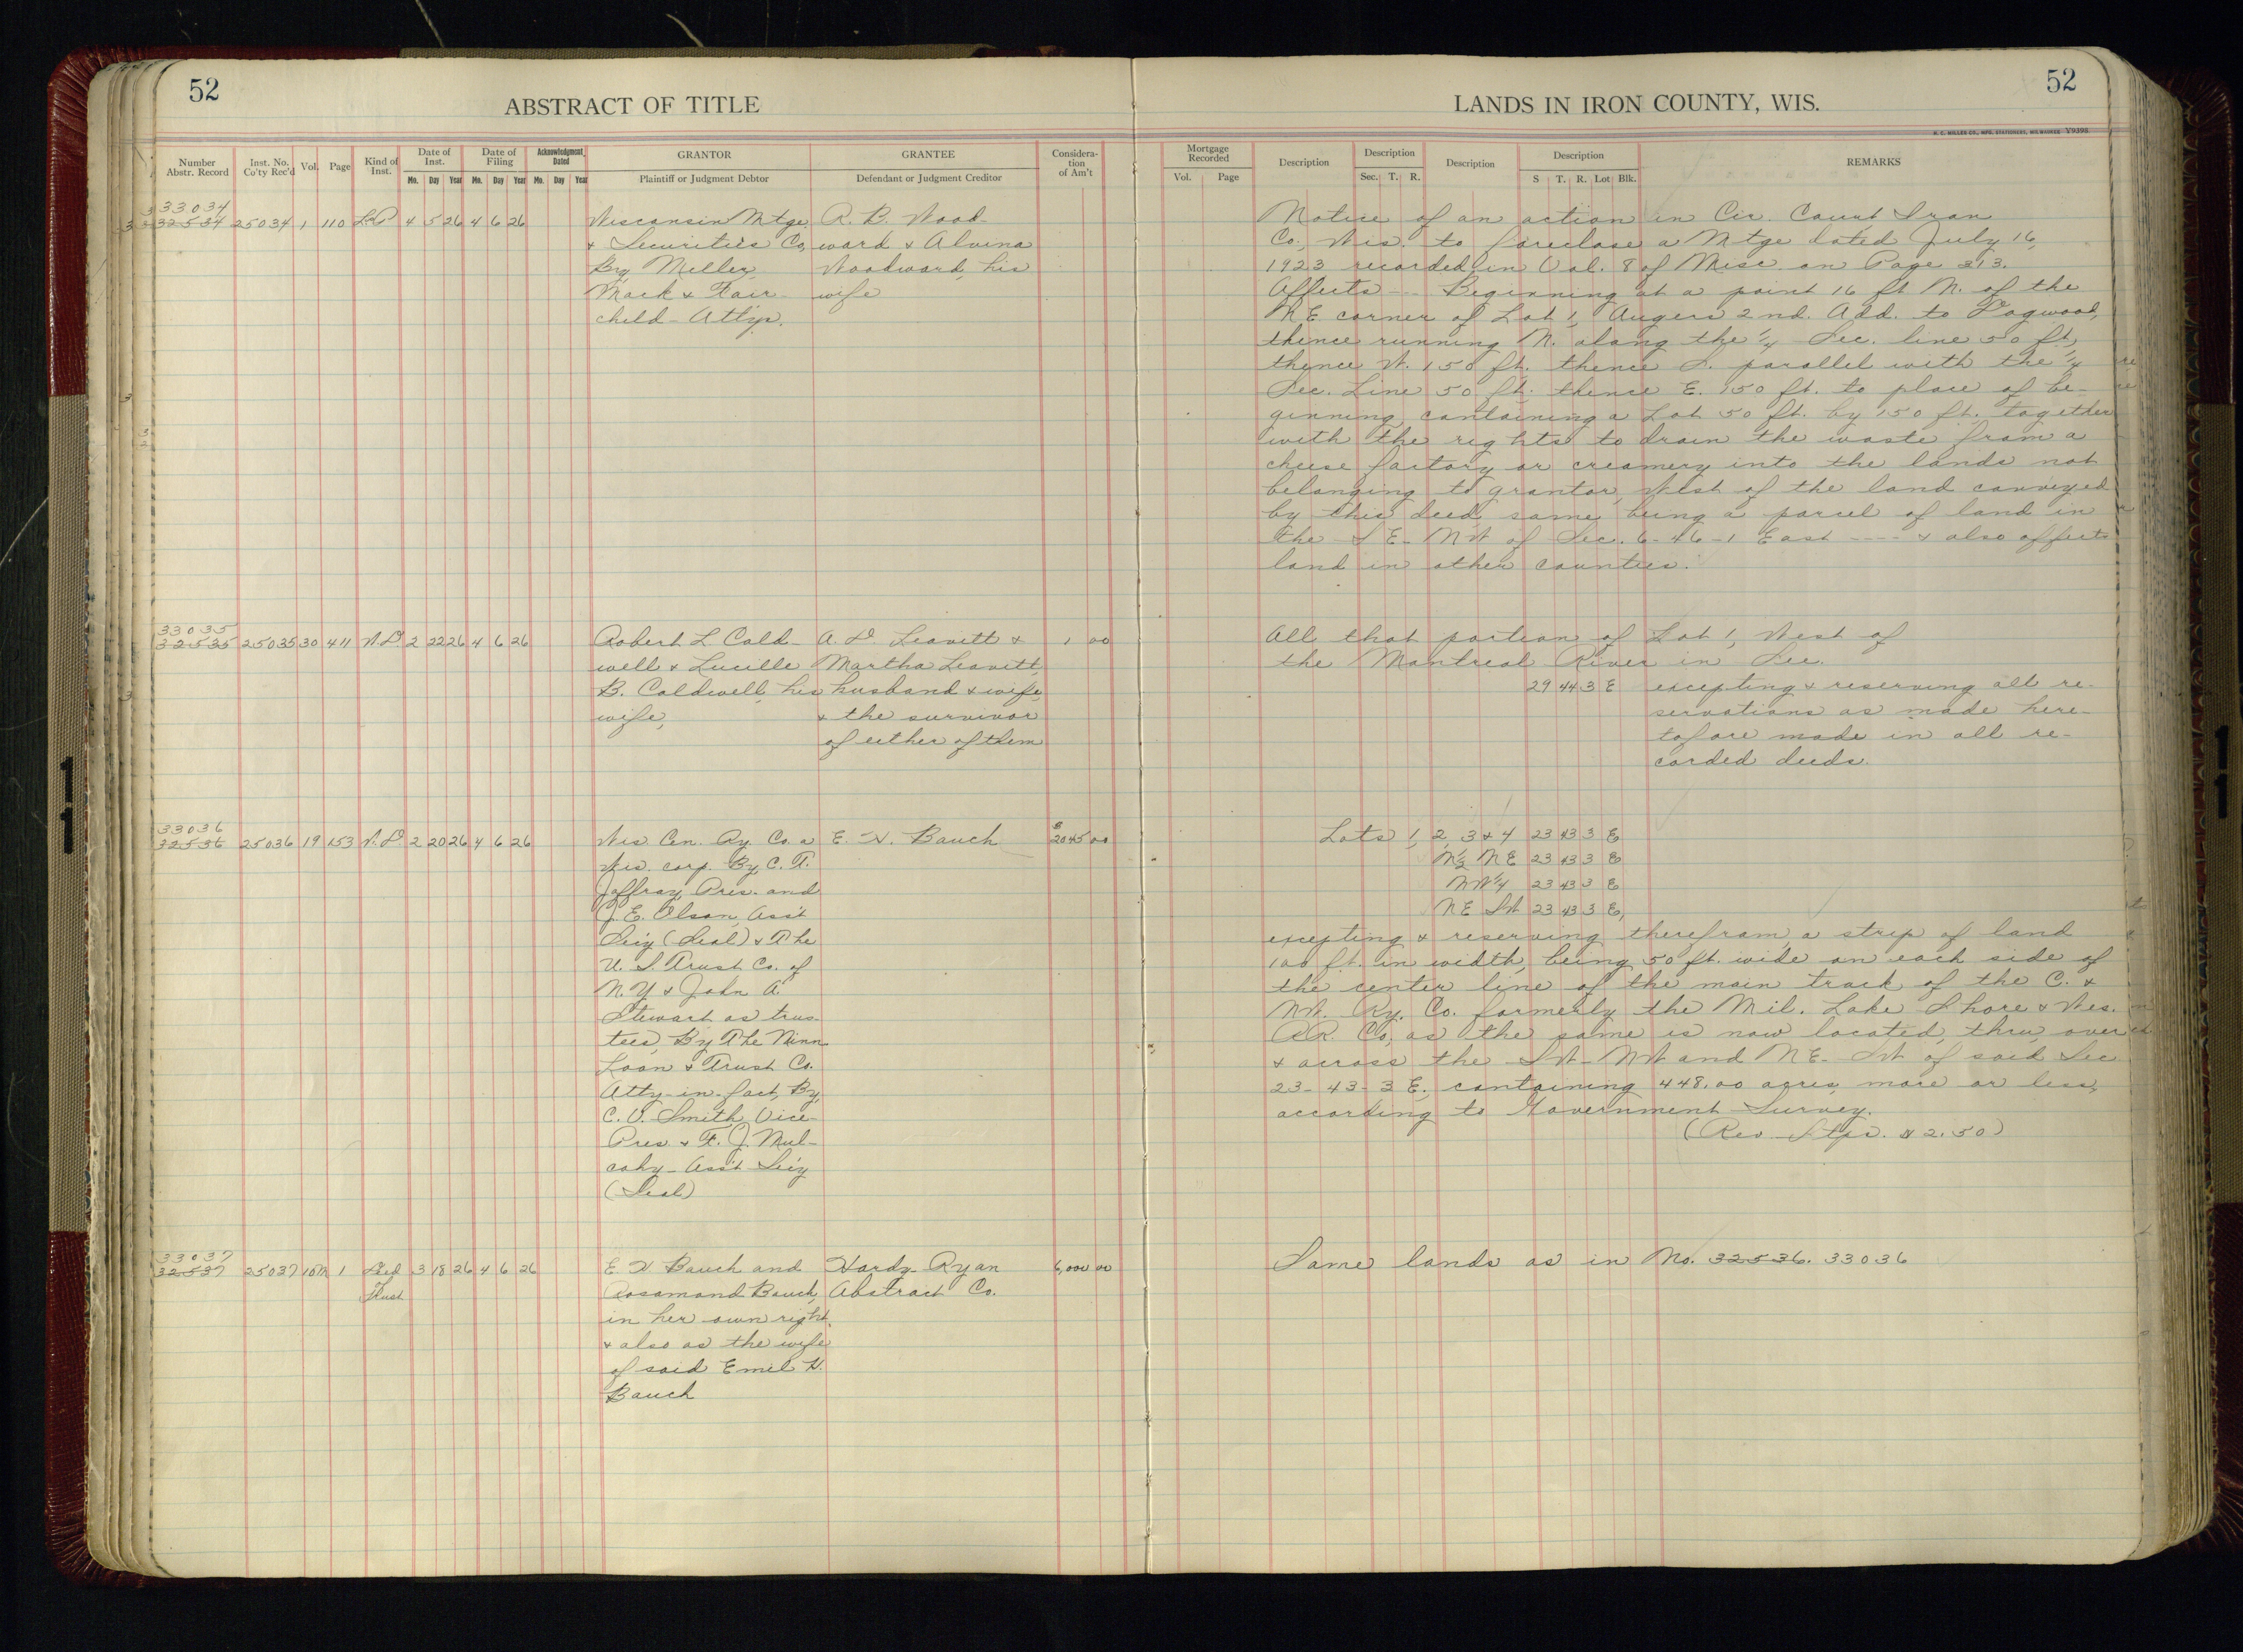 52
ABSTRACT OF TITLE
LANDS IN IRON COUNTY, WIS.
52
H. C. MILLER CO., MFG. STATIONERS, MILWAUKEE Y9398
Number Abstr. Record
Inst. No. Co'ty Rec'd
Vol.
Page
Kind of Inst.
Date of Inst.
Mo. Day Year
Date of Filing
Mo. Day Year
Acknowledgment Dated
Mo. Day Year
GRANTOR
Plaintiff or Judgment Debtor
GRANTEE
Defendant or Judgment Creditor
Considera-tion of Am't
Mortgage Recorded
Vol. Page
Description
Description
Sec. T. R.
Description
Description
S T. R. Lot Blk.
REMARKS
33034
32534 25034 1 110 L.P. 4 5 26 4 6 26
Wisconsin Mtge.
& Securities Co,
By, Miller,
Mack & Fair-
child-Attys.
R. B. Wood-
ward & Alvina
Woodward, his
wife
Notice of an action in Cir. Court, Iran
Co., Wis. to foreclose a Mtge dated July 16,
1923 recorded in Vol. 8 of Misc. on Page 313.
Affects --- Beginning at a point 16 ft N. of the
NE corner of Lot 1, Augers 2nd. Add. to Dogwood,
thence running N. along the 1/4 Sec. line 50 ft,
thence W. 150 ft. thence S. parallel with the 1/4
Sec. Line 50 ft. thence E. 150 ft. to place of be-
ginning, containing a Lot 50 ft. by 150 ft. together
with the rights to drain the waste from a
cheese factory or creamery into the lands not
belonging to grantor, West of the land conveyed
by this deed, same being a parcel of land in
the SE-NW of Sec. 6-46-1 East ---- & also affects
land in other counties.
33035
32535 25035 30 411 W.D. 2 22 26 4 6 26
Robert L Cald-
well & Lucille
B. Caldwell, his
wife,
A. D. Leavitt &
Martha Leavitt,
husband & wife,
& the survivor
of either of them
1 00
All that portion of Lot 1, West of
the Montreal River in Sec.
29 44 3 E excepting & reserving all re-
servations as made here-
tofore made in all re-
corded deeds.
33036
32536 25036 19 153 W.D. 2 20 26 4 6 26
Wis Cen. Ry. Co. a
Wis. corp. By, C. T.
Jaffray, Pres. and
J. E. Olson, Ass't
Sec'y (Seal) & The
U. S. Trust Co. of
N. Y & John A.
Stewart as trus-
tees, By The Minn
Loan & Trust Co.
Atty-in-fact, By,
C. V. Smith, Vice-
Pres & F. J. Mul-
cahy-Ass't Sec'y
(Seal)
E. H. Bauch
$ 2045 00
Lots 1, 2, 3 & 4 23 43 3 E
N1/2 NE 23 43 3 E
NW1/4 23 43 3 E
NE SW 23 43 3 E,
excepting & reserving therefrom, a strip of land
100 ft. in width, being 50 ft. wide on each side of
the center line of the main track of the C. &
NW. Ry. Co. formerly the Mil. Lake Shore & Wes.
RR. Co, as the same is now located, thru, over
& across the SW-NW and NE-SW of said Sec
23-43-3 E. containing 448.00 acres, more or less,
according to Government Survey.
(Rev Stps. $2.50)
33037
32537 25037 10M 1 Deed Trust 3 18 26 4 6 26
E H Bauch and
Rosamond Bauch,
in her own right,
& also as the wife
of said Emil H.
Bauch
Hardy-Ryan
Abstract Co.
6,000 00
Same lands as in No. 32536. 33036